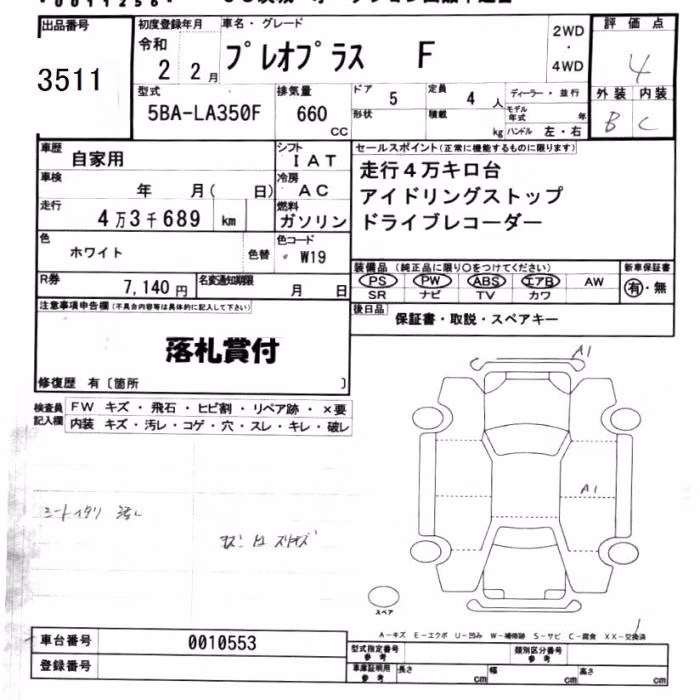 出品番号
3511
初度登録年月
令和
2 2月
車名・グレード
プレオプラス F
2WD
・
4WD
評価点
4
型式
5BA-LA350F
排気量
660
CC
ドア
5
形状
定員
4 人
積載
kg
ディーラー・並行
モデル年式 年
ハンドル 左・右
外装 内装
B C
車歴
自家用
シフト
IAT
車検
年 月( 日)
冷房
AC
走行
4万3千689 km
燃料
ガソリン
色
ホワイト
色替
色コード
W19
R券
7,140円
名変通知期限
月 日
セールスポイント(正常に機能するものに限ります)
走行4万キロ台
アイドリングストップ
ドライブレコーダー
装備品(純正品に限り○をつけてください)
PS PW ABS エアB AW
SR ナビ TV カワ
新車保証書
有・無
後日品
保証書・取説・スペアキー
注意事項申告欄(不具合内容等は具体的に記入して下さい)
落札賞付
修復歴 有〔箇所 〕
検査員記入欄
FW キズ・飛石・ヒビ割・リペア跡・×要
内装 キズ・汚レ・コゲ・穴・スレ・キレ・破レ
A1
A1
スペア
A-キズ E-エクボ U-凹み W-補修跡 S-サビ C-腐食 XX-交換済
車台番号
0010553
登録番号
型式指定番号
参考
類別区分番号
参考
車庫証明用
参考
長さ cm
幅 cm
高さ cm